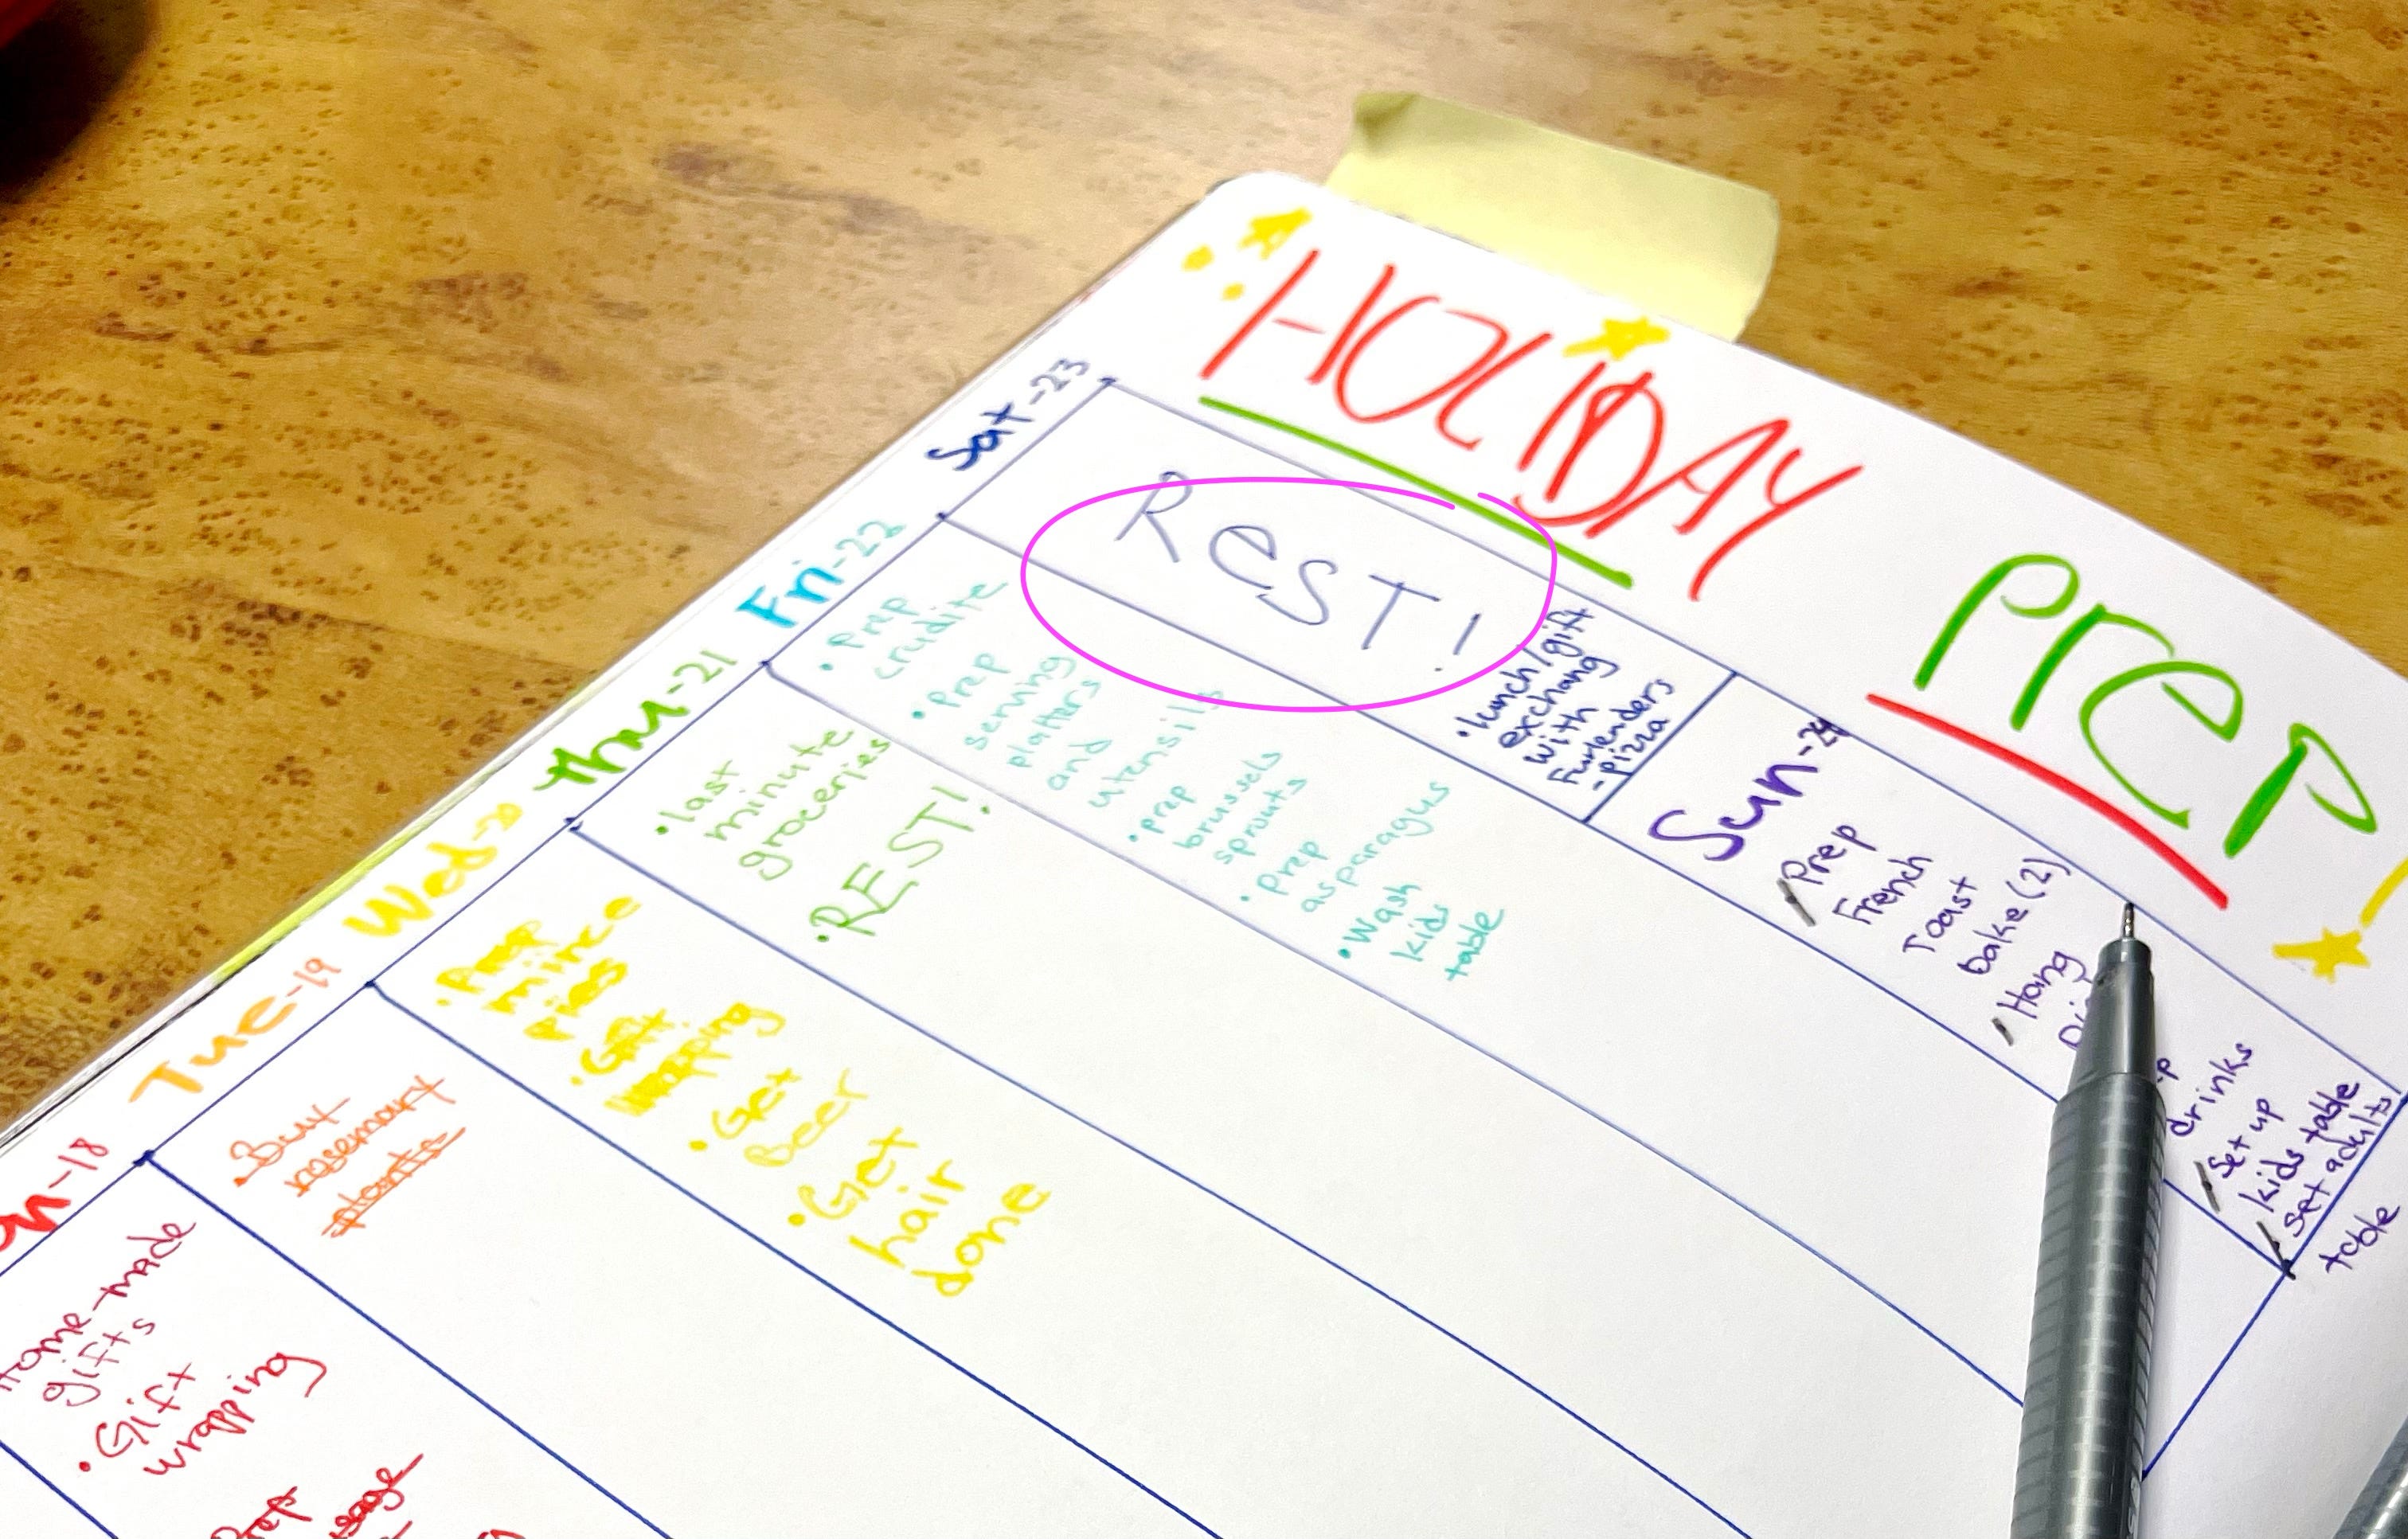 HOLIDAY PreP!
Sat-23
ReST!
• lunch/gift
exchang
with
- pizza
Sun-24
Prep
French
Toast
bake (2)
Hang
drinks
Set up
kids table
Set adults
table
Fri-22
• Prep
crudite
• Prep
serving
platters
and
utensils
• prep
brussels
sprouts
• prep
asparagus
• Wash
kids
table
Thu-21
• last
minute
groceries
• REST!
Wed-20
• Prep
mince
pies
• Gift
wrapping
• Get
Beer
• Get
hair
done
Tue-19
• Buy
rosemary
plants
on-18
Home-made
gifts
• Gift
wrapping
Prep